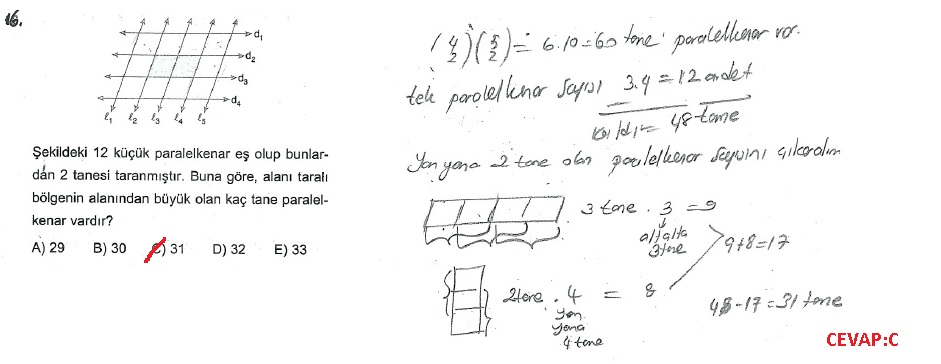 16.
d₁
d₂
d₃
d₄
ℓ₁ ℓ₂ ℓ₃ ℓ₄ ℓ₅
Şekildeki 12 küçük paralelkenar eş olup bunlar-
dan 2 tanesi taranmıştır. Buna göre, alanı taralı
bölgenin alanından büyük olan kaç tane paralel-
kenar vardır?
A) 29 B) 30 C) 31 D) 32 E) 33
(4 2)(5 2) = 6.10=60 tane paralelkenar var.
tek paralelkenar sayısı 3.4 = 12 adet
Kaldı = 48 tane
Yan yana 2 tane olan paralelkenar sayısını çıkaralım
3 tane . 3 = 9
alt alta
3 tane
9+8=17
2 tane . 4 = 8
yan
yana
4 tane
48-17=31 tane
CEVAP:C